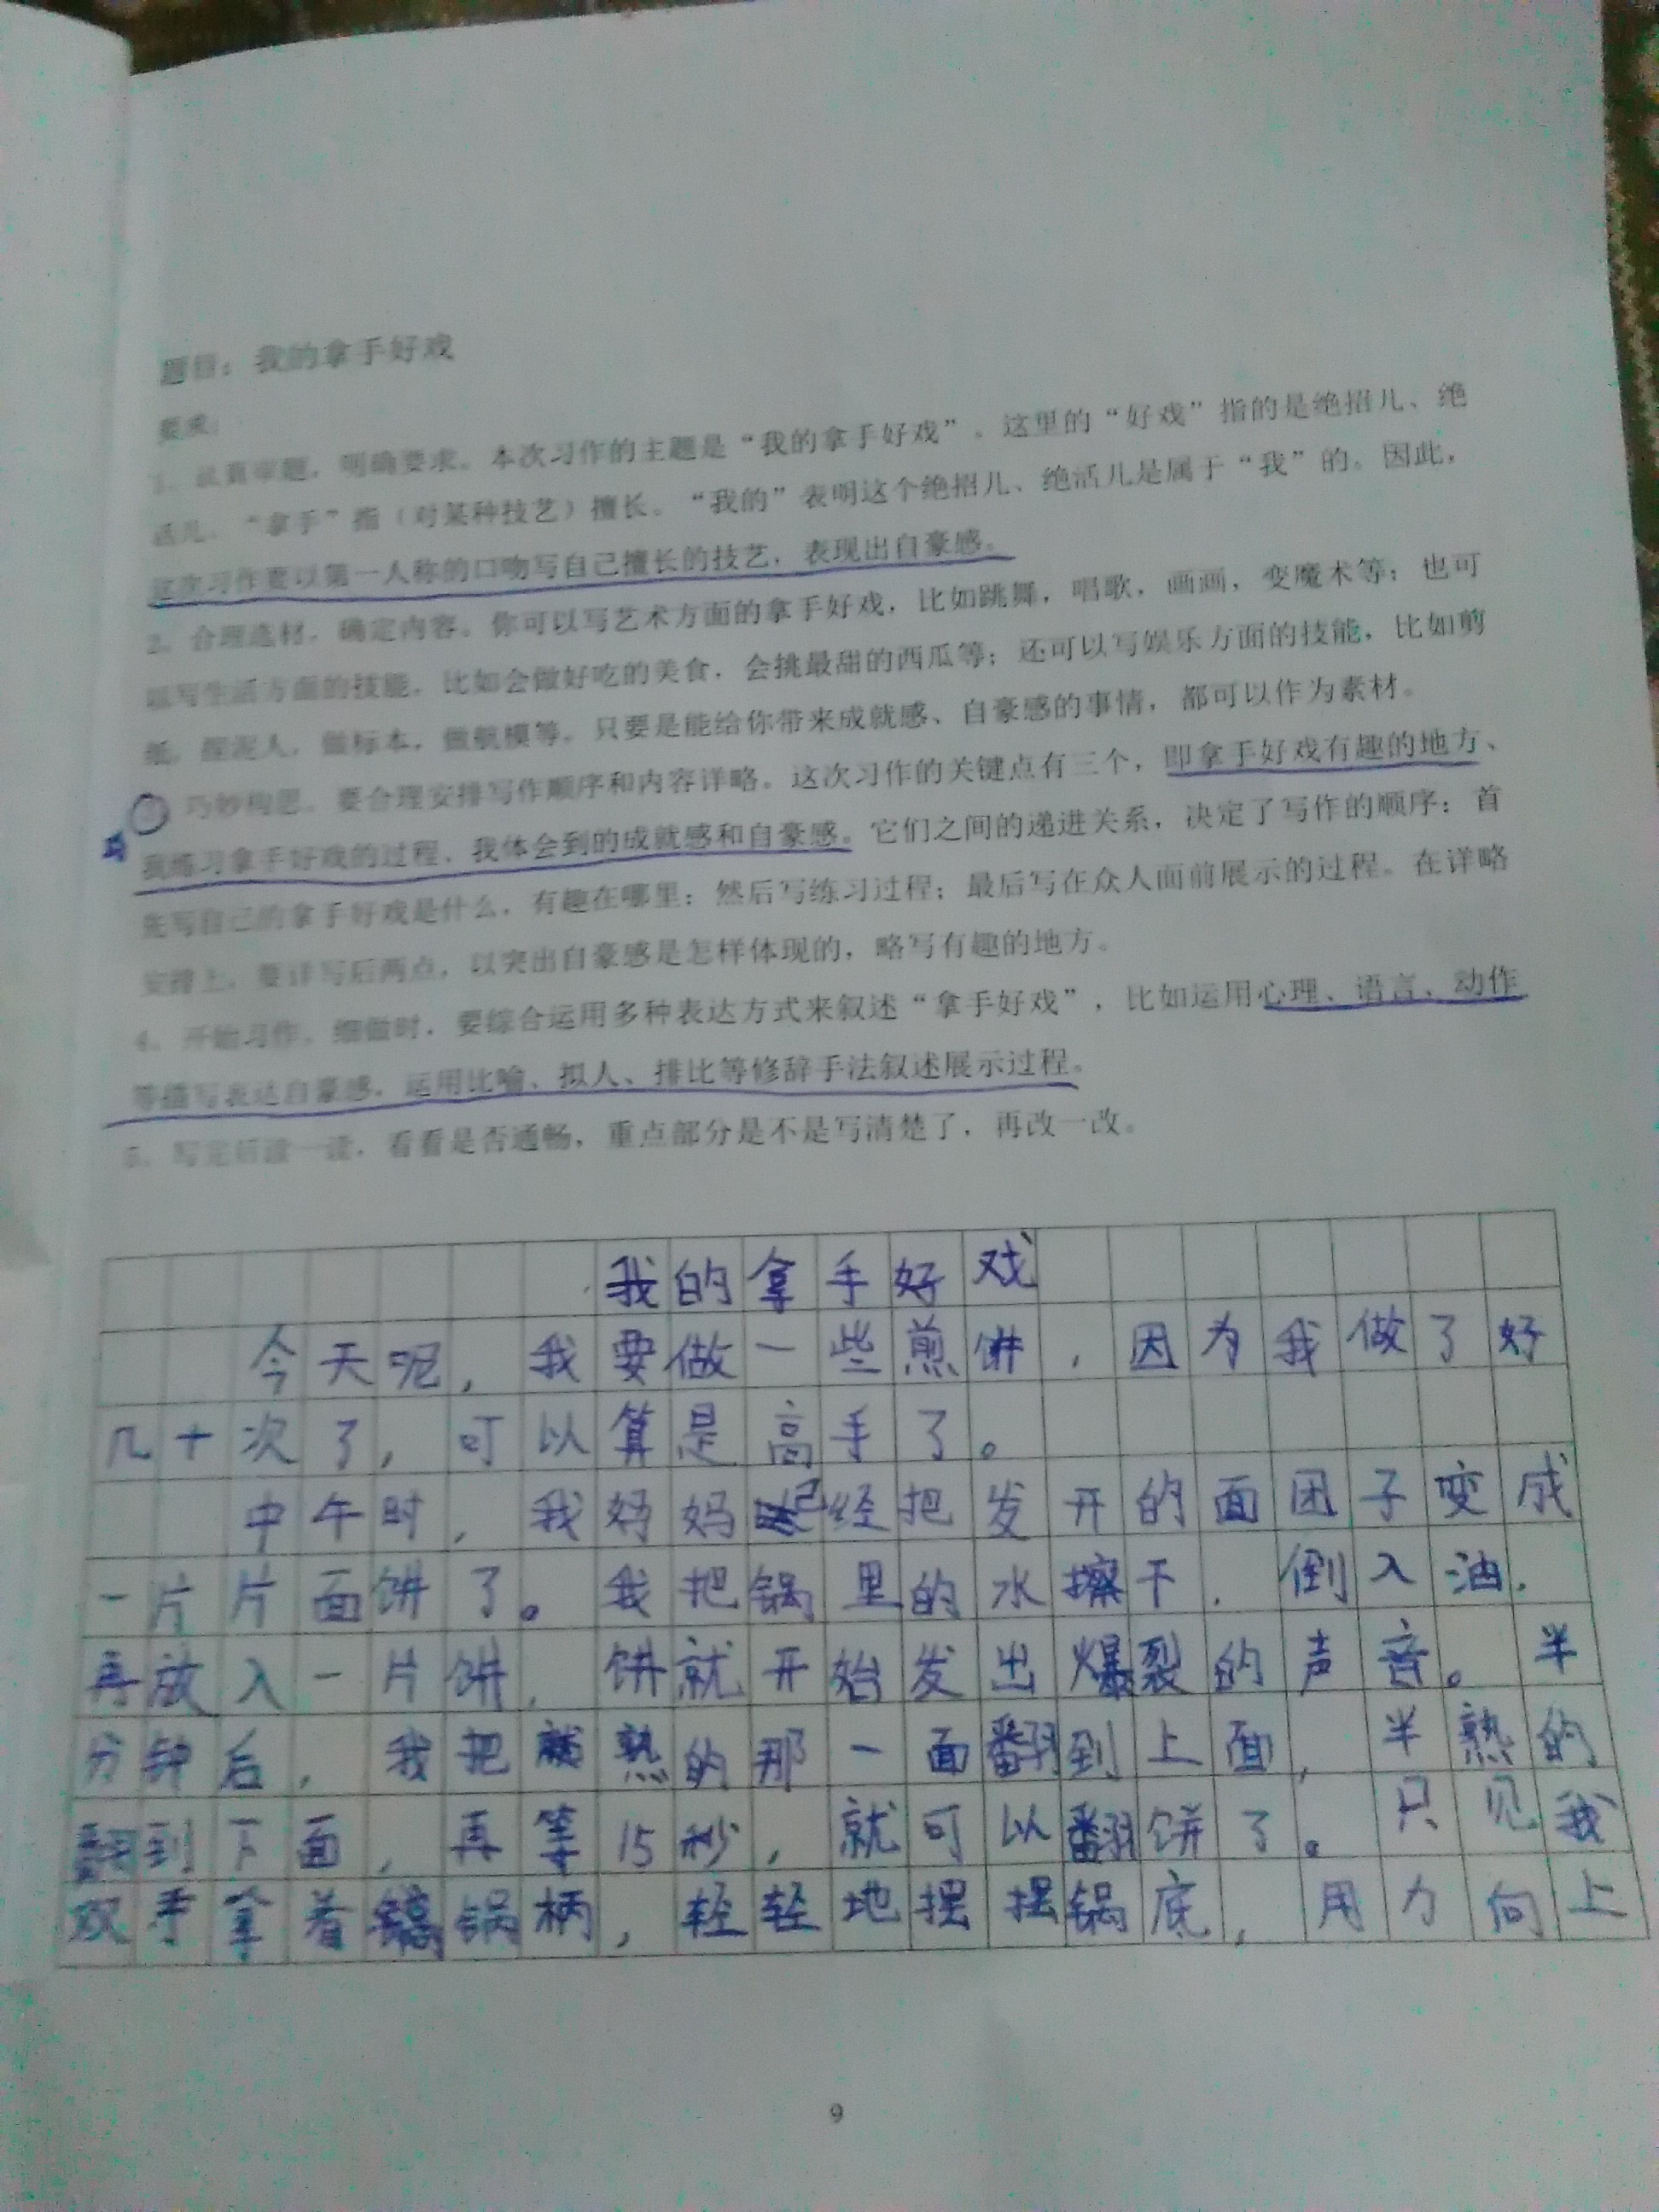 题目：我的拿手好戏
要求：
1、认真审题，明确要求。本次习作的主题是“我的拿手好戏”。这里的“好戏”指的是绝招儿、绝
活儿，“拿手”指（对某种技艺）擅长。“我的”表明这个绝招儿、绝活儿是属于“我”的。因此，
这次习作要以第一人称的口吻写自己擅长的技艺，表现出自豪感。
2、合理选材，确定内容。你可以写艺术方面的拿手好戏，比如跳舞，唱歌，画画，变魔术等；也可
以写生活方面的技能，比如会做好吃的美食，会挑最甜的西瓜等；还可以写娱乐方面的技能，比如剪
纸，捏泥人，做标本，做航模等。只要是能给你带来成就感、自豪感的事情，都可以作为素材。
巧妙构思。要合理安排写作顺序和内容详略。这次习作的关键点有三个，即拿手好戏有趣的地方、
我练习拿手好戏的过程、我体会到的成就感和自豪感。它们之间的递进关系，决定了写作的顺序：首
先写自己的拿手好戏是什么，有趣在哪里；然后写练习过程；最后写在众人面前展示的过程。在详略
安排上，要详写后两点，以突出自豪感是怎样体现的，略写有趣的地方。
4、开始习作。细做时，要综合运用多种表达方式来叙述“拿手好戏”，比如运用心理、语言、动作
等描写表达自豪感，运用比喻、拟人、排比等修辞手法叙述展示过程。
5、写完后读一读，看看是否通畅，重点部分是不是写清楚了，再改一改。
我的拿手好戏
今天呢，我要做一些煎饼，因为我做了好
几十次了，可以算是高手了。
中午时，我妈妈已经把发开的面团子变成
一片片面饼了。我把锅里的水擦干，倒入油，
再放入一片饼，饼就开始发出爆裂的声音。半
分钟后，我把熟的那一面翻到上面，半熟的
翻到下面，再等15秒，就可以翻饼了。只见我
双手拿着锅柄，轻轻地摆摆锅底，用力向上
9